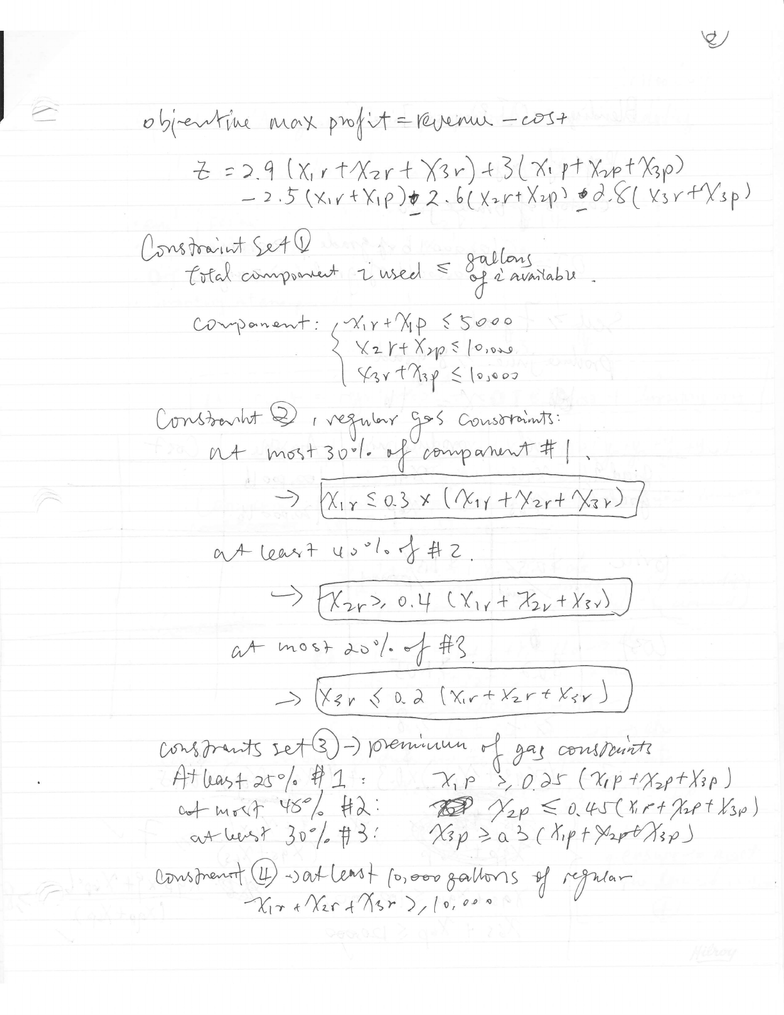 2
objective max profit = revenue - cost
Z = 2.9 (X1r + X2r + X3r) + 3 (X1p + X2p + X3p)
- 2.5 (X1r + X1p) - 2.6 (X2r + X2p) - 2.8 (X3r + X3p)
Constraint Set ①
total component i used ≤ gallons of i available.
component: { X1r + X1p ≤ 5000
X2r + X2p ≤ 10,000
X3r + X3p ≤ 10,000
Constraint ②, regular gas constraints:
at most 30% of component #1.
→ X1r ≤ 0.3 × (X1r + X2r + X3r)
at least 40% of #2.
→ X2r ≥ 0.4 (X1r + X2r + X3r)
at most 20% of #3
→ X3r ≤ 0.2 (X1r + X2r + X3r)
constraints set ③ → premium of gas constaints
At least 25% #1: X1p ≥ 0.25 (X1p + X2p + X3p)
at most 45% #2: X2p ≤ 0.45 (X1p + X2p + X3p)
at least 30% #3: X3p ≥ 0.3 (X1p + X2p + X3p)
constraint ④ → at least 10,000 gallons of regular
X1r + X2r + X3r ≥ 10,000
Hilroy